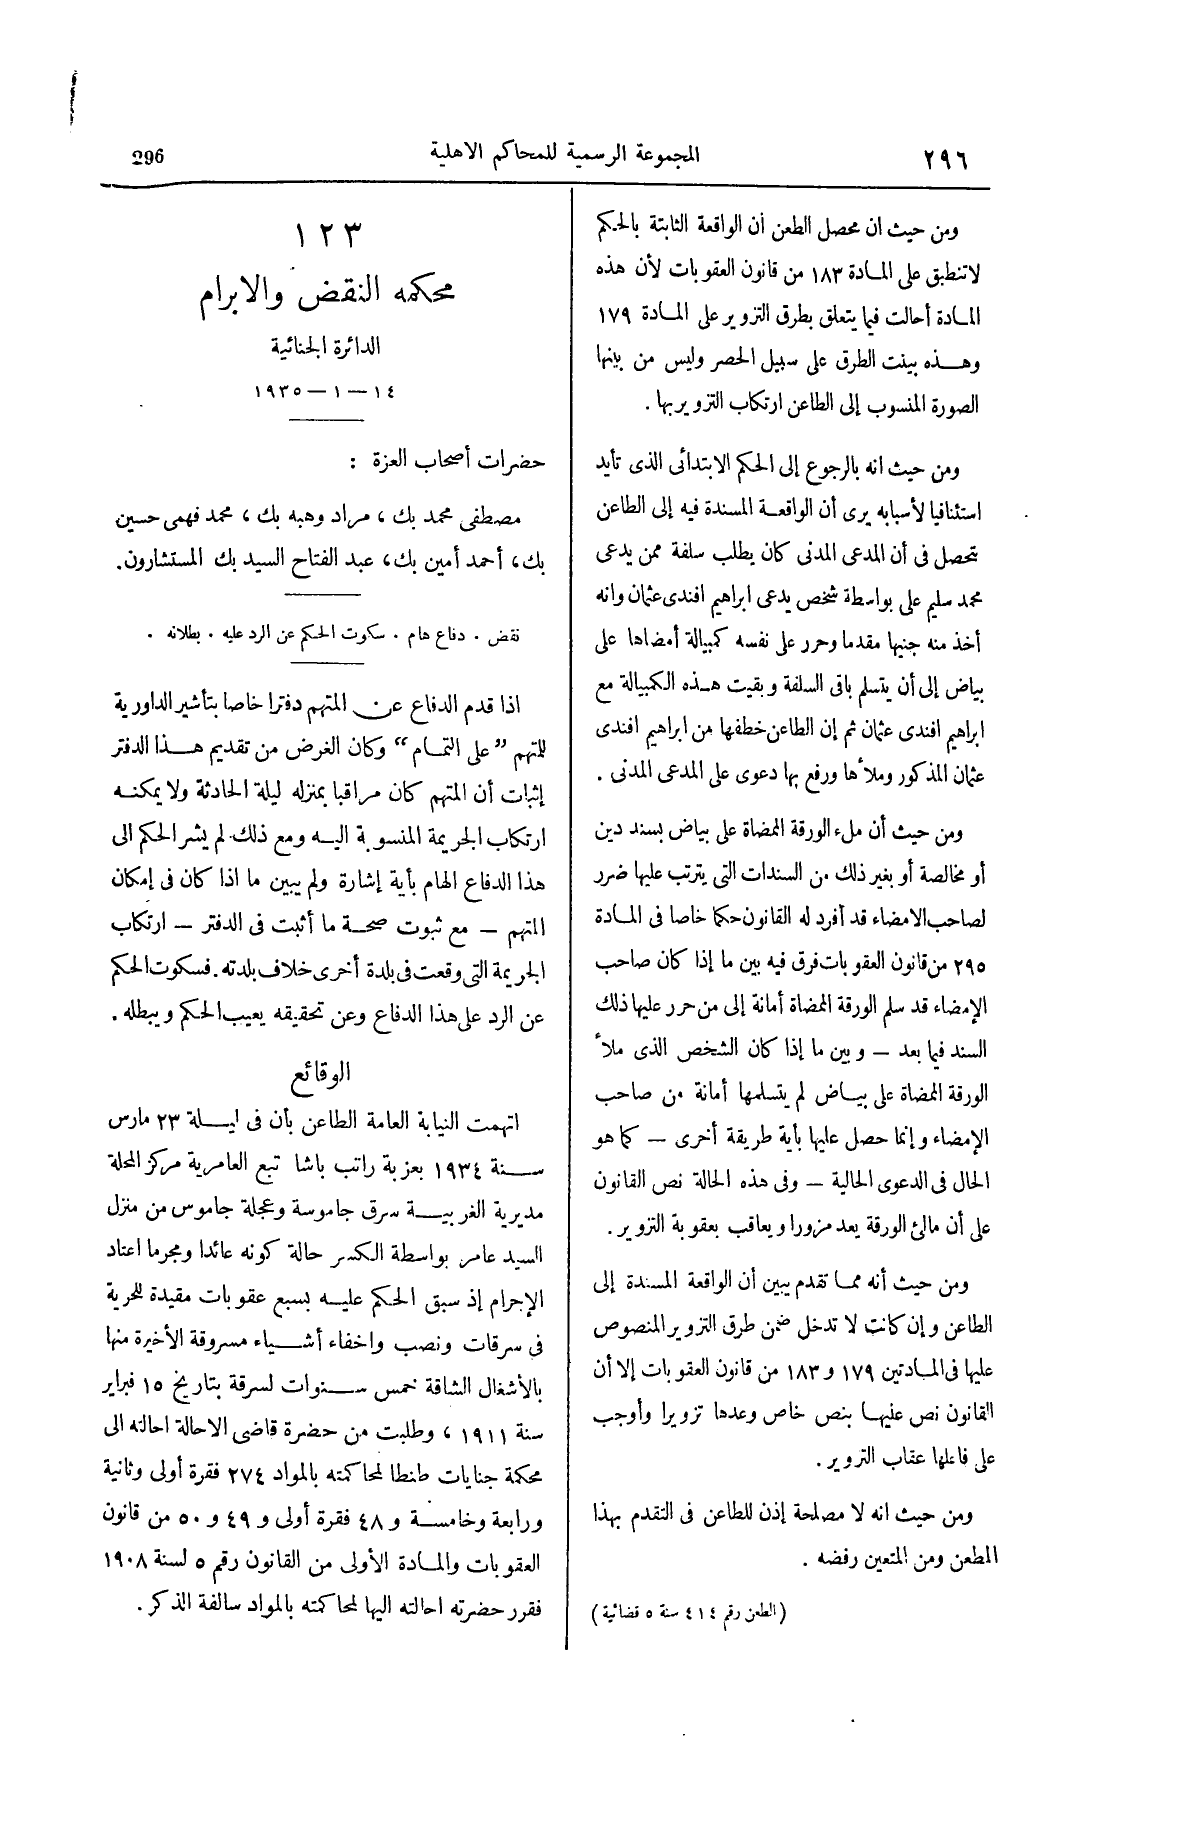 ٢٩٦
المجموعة الرسمية للمحاكم الاهلية
296
ومن حيث ان محصل الطعن أن الواقعة الثابتة بالحكم
لاتنطبق على المادة ١٨٣ من قانون العقوبات لأن هذه
المادة أحالت فيما يتعلق بطرق التزوير على المادة ١٧٩
وهذه بينت الطرق على سبيل الحصر وليس من بينها
الصورة المنسوب إلى الطاعن ارتكاب التزوير بها .
ومن حيث انه بالرجوع إلى الحكم الابتدائى الذى تأيد
استئنافيا لأسبابه يرى أن الواقعة المسندة فيه إلى الطاعن
تتحصل فى أن المدعى المدنى كان يطلب سلفة ممن يدعى
محمد سليم على بواسطة شخص يدعى ابراهيم افندى عثمان وانه
أخذ منه جنيها مقدما وحرر على نفسه كمبيالة أمضاها على
بياض إلى أن يتسلم باقى السلفة وبقيت هذه الكمبيالة مع
ابراهيم افندى عثمان ثم إن الطاعن خطفها من ابراهيم افندى
عثمان المذكور وملأها ورفع بها دعوى على المدعى المدنى .
ومن حيث أن ملء الورقة الممضاة على بياض بسند دين
أو مخالصة أو بغير ذلك من السندات التى يترتب عليها ضرر
لصاحب الامضاء قد أفرد له القانون حكما خاصا فى المادة
٢٩٥ من قانون العقوبات فرق فيه بين ما إذا كان صاحب
الإمضاء قد سلم الورقة الممضاة أمانة إلى من حرر عليها ذلك
السند فيما بعد – وبين ما إذا كان الشخص الذى ملأ
الورقة الممضاة على بياض لم يتسلمها أمانة من صاحب
الإمضاء وإنما حصل عليها بأية طريقة أخرى – كما هو
الحال فى الدعوى الحالية – وفى هذه الحالة نص القانون
على أن مالئ الورقة يعد مزورا ويعاقب بعقوبة التزوير .
ومن حيث أنه مما تقدم يبين أن الواقعة المسندة إلى
الطاعن وإن كانت لا تدخل ضمن طرق التزوير المنصوص
عليها فى المادتين ١٧٩ و ١٨٣ من قانون العقوبات إلا أن
القانون نص عليها بنص خاص وعدها تزويرا وأوجب
على فاعلها عقاب التزوير .
ومن حيث انه لا مصلحة إذن للطاعن فى التقدم بهذا
المطعن ومن المتعين رفضه .
(الطعن رقم ٤١٤ سنة ٥ قضائية)
١٢٣
محكمه النقض والابرام
الدائرة الجنائية
١٤ – ١ – ١٩٣٥
حضرات أصحاب العزة :
مصطفى محمد بك ، مراد وهبه بك ، محمد فهمى حسين
بك، أحمد أمين بك، عبد الفتاح السيد بك المستشارون.
نقض . دفاع هام . سكوت الحكم عن الرد عليه . بطلانه .
اذا قدم الدفاع عن المتهم دفترا خاصا بتأشير الداورية
للمتهم ”على التمام“ وكان الغرض من تقديم هذا الدفتر
إثبات أن المتهم كان مراقبا بمنزله ليلة الحادثة ولا يمكنه
ارتكاب الجريمة المنسوبة اليه ومع ذلك لم يشر الحكم الى
هذا الدفاع الهام بأية إشارة ولم يبين ما اذا كان فى إمكان
المتهم – مع ثبوت صحة ما أثبت فى الدفتر – ارتكاب
الجريمة التى وقعت فى بلدة أخرى خلاف بلدته. فسكوت الحكم
عن الرد على هذا الدفاع وعن تحقيقه يعيب الحكم ويبطله .
الوقائع
اتهمت النيابة العامة الطاعن بأن فى ليلة ٢٣ مارس
سنة ١٩٣٤ بعزبة راتب باشا تبع العامرية مركز المحلة
مديرية الغربية سرق جاموسة وعجلة جاموس من منزل
السيد عامر بواسطة الكسر حالة كونه عائدا ومجرما اعتاد
الإجرام إذ سبق الحكم عليه بسبع عقوبات مقيدة للحرية
فى سرقات ونصب واخفاء أشياء مسروقة الأخيرة منها
بالأشغال الشاقة خمس سنوات لسرقة بتاريخ ١٥ فبراير
سنة ١٩١١ ، وطلبت من حضرة قاضى الاحالة احالته الى
محكمة جنايات طنطا لمحاكمته بالمواد ٢٧٤ فقرة أولى وثانية
ورابعة وخامسة و ٤٨ فقرة أولى و ٤٩ و ٥٠ من قانون
العقوبات والمادة الأولى من القانون رقم ٥ لسنة ١٩٠٨
فقرر حضرته احالته اليها لمحاكمته بالمواد سالفة الذكر .